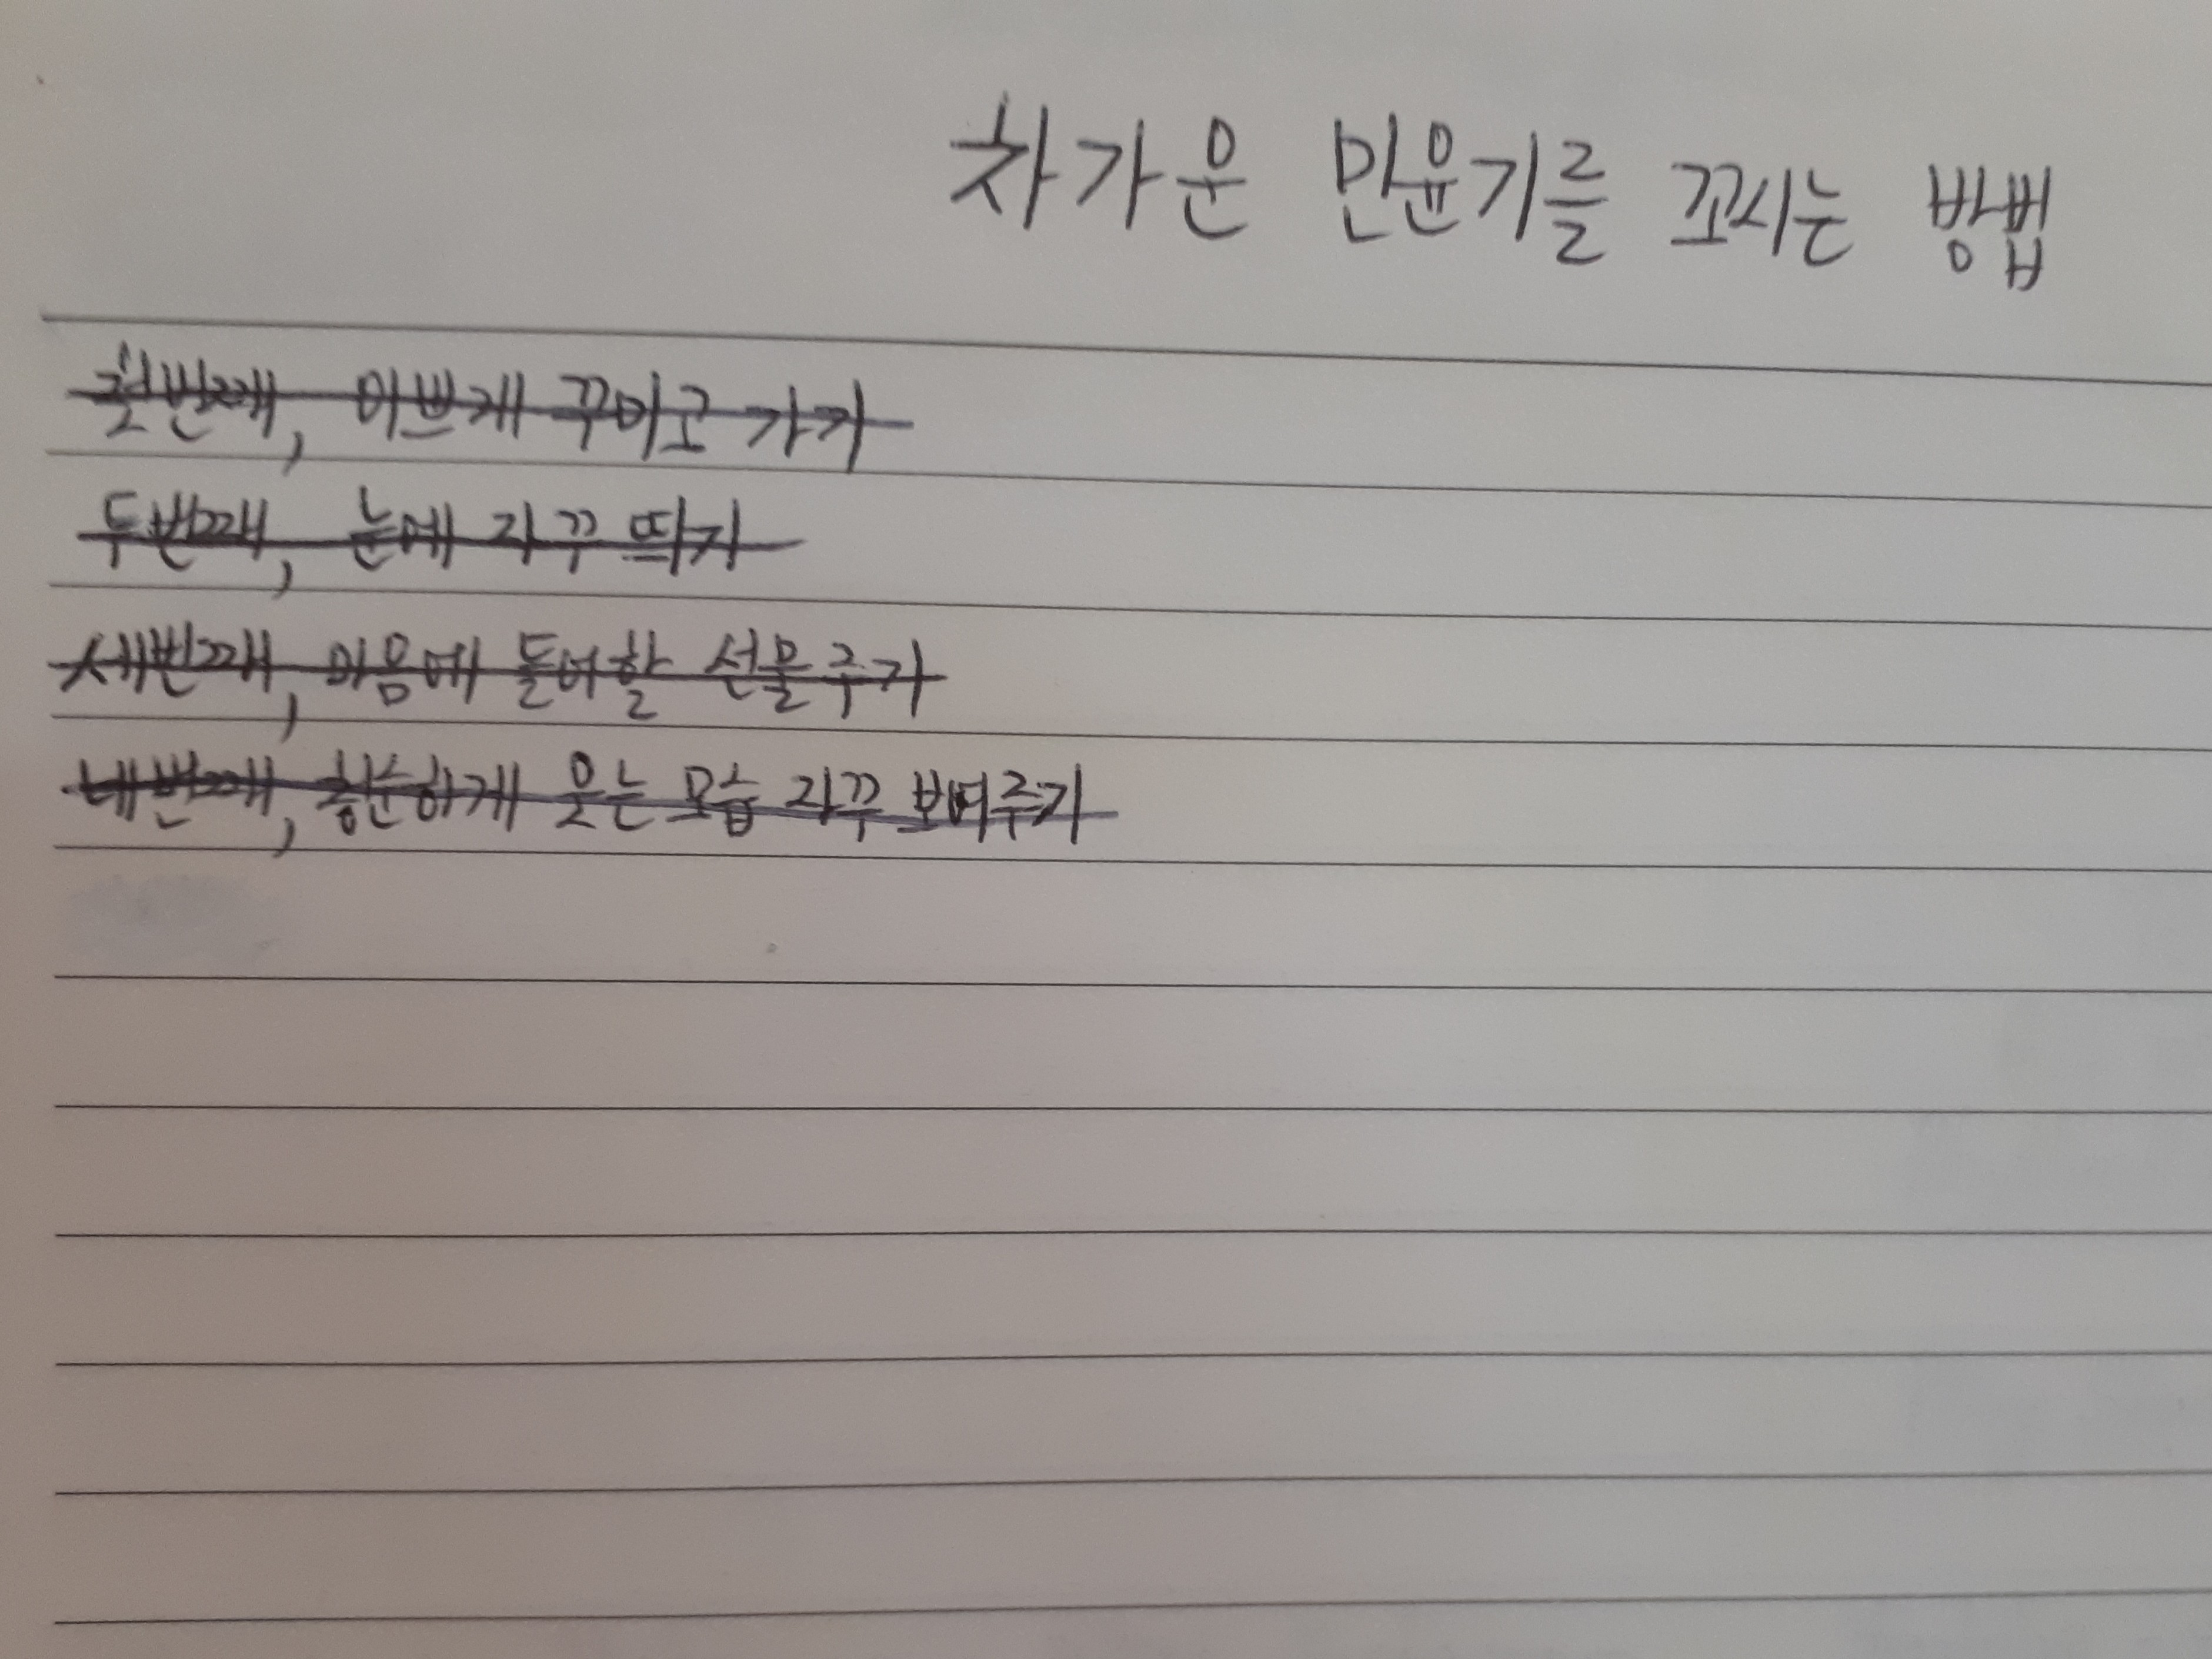 차가운 민윤기를 꼬시는 방법
첫번째, 이쁘게 꾸미고 가기
두번째, 눈에 자꾸 띄기
세번째, 마음에 들어할 선물주기
네번째, 환하게 웃는 모습 자꾸 보여주기